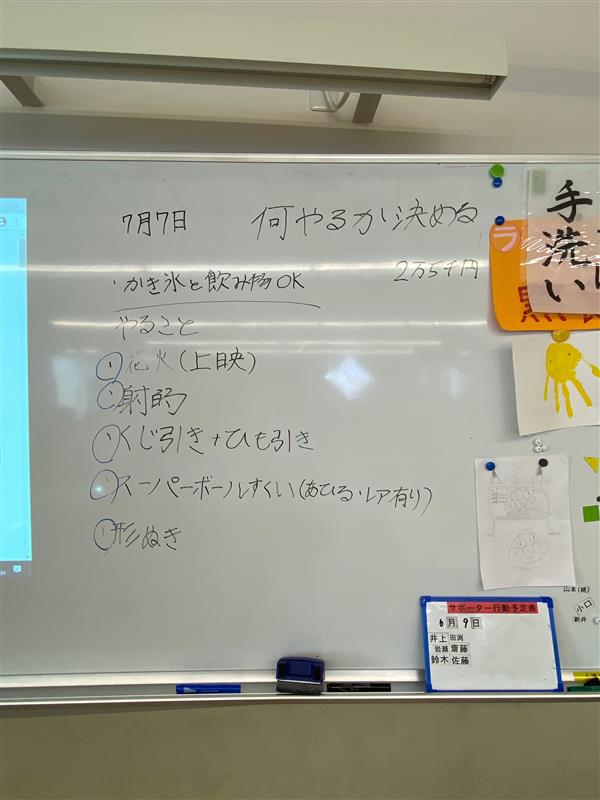 7月7日 何やるか決める
・かき氷と飲み物OK 2万5千円
やること
・花火(上映)
・射的
・くじ引き+ひも引き
・スーパーボールすくい(あひる・レア有り)
・形ぬき
手洗い
ラ
サポーター行動予定表
6月9日
井上 田渕
岩瀬 齋藤
鈴木 佐藤
山本(桃)
小口
新井